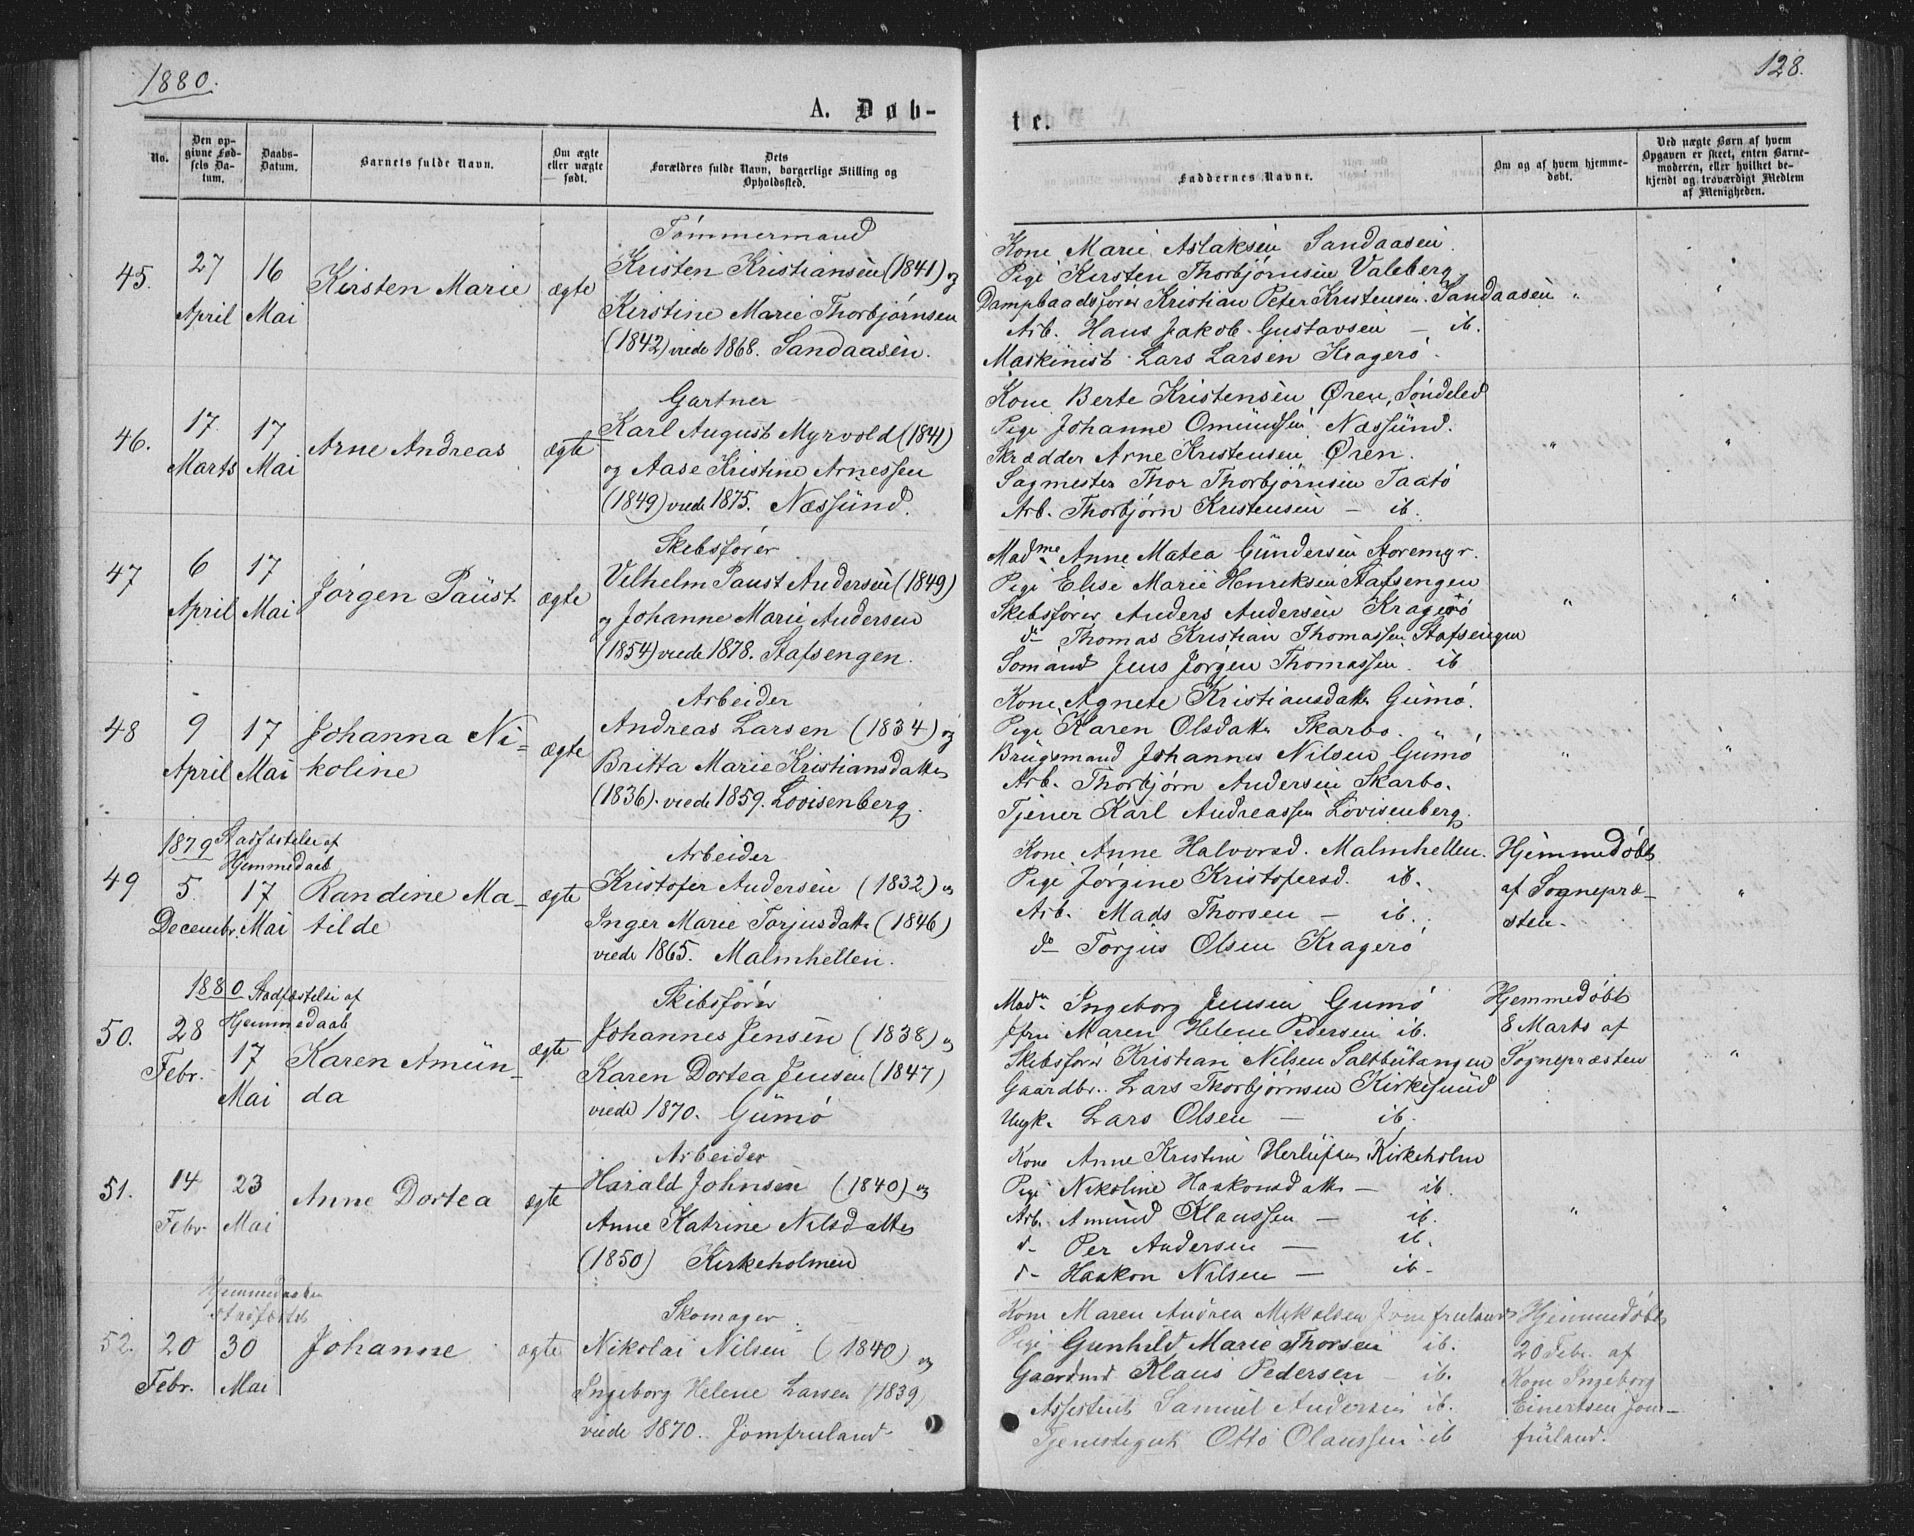 1880.
128.
A. Døb-
te.
No.
Den op-
givne Fød-
sels Da-
tum.
Daabs-
Datum.
Barnets fulde Navn.
Om ægte
eller uægte
født.
Dets
Forældres fulde Navn, borgerlige Stilling og
Opholdssted.
Faddernes Navne.
Om og af hvem hjemme-
døbt.
Ved uægte Børn af hvem
Opgaven er skeet, enten Barne-
moderen, eller hvilket be-
kjendt og troværdigt Medlem
af Menigheden.
45.
27
April
16
Mai
Kirsten Marie
ægte
Tömmermand
Kristen Kristiansen (1841) og
Kirstine Marie Thorbjørnsen
(1842) viede 1868. Sandaasen.
Kone Marie Aslaksen Sandaasen.
Pige Kirsten Thorbjørnsen Valeberg
Dampbaadsfører Kristian Peter Kristensen Sandaasen "
Arb. Hans Jakob Gustavsen — ib.
Maskinist Lars Larsen Kragerö.
46.
17
Marts
17
Mai
Arne Andreas
ægte
Gartner
Karl August Myrvold (1841)
og Aase Kristine Arnessen
(1849) viede 1875. Næssund.
Kone Berte Kristensen Øren, Söndeled
Pige Johanne Omundsen Næssund.
Skrædder Arne Kristensen Øren.
Sagmester Thor Thorbjørnsen Taatö
Arb. Thorbjørn Kristensen — ib.
47
6
April
17
Mai
Jörgen Paust
ægte
Skibsfører
Vilhelm Paust Andersen (1849)
og Johanne Marie Andersen
(1854) viede 1878. Stafsengen.
Madme Anne Matea Gundersen Storemyr.
Pige Elise Marie Henriksen Stafsengen
Skibsfører Anders Andersen Kragerö
do Thomas Kristian Thomassen Stafsengen
Sömand Jens Jörgen Thomassen ib
48
9
April
17
Mai
Johanna Ni=
koline
ægte
Arbeider
Andreas Larsen (1834) og
Britta Marie Kristiansdatter
(1836). viede 1859. Lovisenberg.
Kone Agnete Kristiansdatt. Gumö.
Pige Karen Olsdatt. Skarbo.
Brugsmand Johannes Nilsen Gumö
Arb. Thorbjørn Andersen Skarbo.
Tjener Karl Andreassen Lovisenberg.
49
1879 Stadfæstelse af
Hjemmedaab
5.
Decembr.
17
Mai
Randine Ma-
tilde
ægte
Arbeider
Kristofer Andersen (1832) og
Inger Marie Torjusdatt. (1846)
viede 1865. Malmhellen.
Kone Anne Halvorsd. Malmhellen.
Pige Jörgine Kristofersd. ib.
Arb. Mads Thorsen — ib.
do Torjus Olsen Kragerö
Hjemmedøbt
af Sognepræ-
sten.
50.
1880 Stadfæstelse af
Hjemmedaab
28
Febr.
17
Mai
Karen Amun-
da
ægte
Skibsfører
Johannes Jensen (1838) og
Karen Dortea Jensen (1847)
viede 1870. Gumö
Made Ingeborg Jensen Gumö
Jfru Maren Helene Pedersen ib.
Skibsfører Kristian Nilsen Saltbutangen
Gaardbr. Lars Thorbjørnsen Kirkesund
Ungk. Lars Olsen — ib.
Hjemmedøbt
8 Marts af
Sognepræsten
51.
14
Febr.
23
Mai
Anne Dortea
ægte
Arbeider
Harald Johnsen (1840) og
Anne Katrine Nilsdatter
(1850) Kirkeholmen
Kone Anne Kristine Herlufsen Kirkeholm
Pige Nikoline Haakonsdatter — ib.
Arb. Amund Klaussen — ib.
d- Per Andersen — ib.
d- Haakon Nilsen — ib.
52.
Hjemmedaaben
stadfæstet
20
Febr.
30
Mai
Johanne
ægte
Skomager
Nikolai Nilsen (1840) og
Ingeborg Helene Larsen (1839)
viede 1870. Jomfruland
Kone Maren Andrea Mikelsen Jomfruland
Pige Gunhild Marie Thorsen ib.
Gaardmd Klaus Pedersen — ib.
Assistent Samuel Andersen ib.
Tjenestegut Otto Olaussen ib
Hjemmedøbt
20 Febr. af
Kone Ingeborg
Einertsen Jom-
fruland.